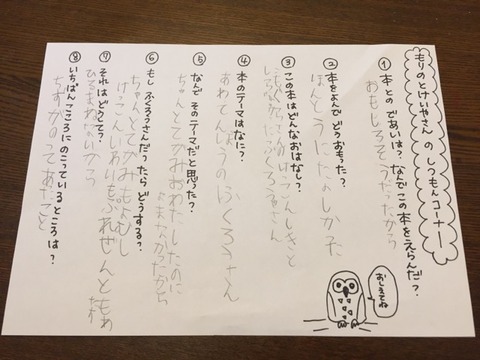 もりのとけいやさん の しつもんコーナー
① 本との であいは？なんでこの本をえらんだ？
おもしろそうだったから
② 本をよんで どうおもった？
ほんとうにたのしかた
③ この本はどんなおはなし？
ふくろうさん
④ 本のテーマはなに？
あわてんぼうのふくろうさん
⑤ なんで そのテーマだと思った？
ちゃんとてがみおわたしたのに
よまなかったから
⑥ もし ふくろうさんだったら どうする？
ちゃんとてがみもよむし
けっこんいわいもぷれぜんともわ
⑦ それは どうして？
ひるまねないから
⑧ いちばんこころにのこっているところは？
ちずがのってあたこと
おしえてね